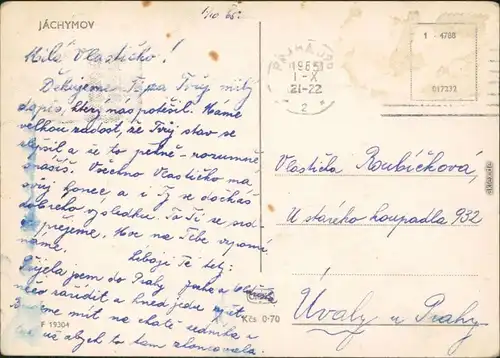 JÁCHYMOV
1/10 65.
Milá Vlastičko!
Děkujeme Ti za Tvůj milý
dopis, který nás potěšil. Máme
velkou radost, že Tvůj stav se
zlepšil a že to pěkně - rozumně
snášíš. Všechno Vlastičko má
svůj konec a i Ty se dočkáš
dobrého výsledku. To Ti ze srd-
přejeme. Moc na Tebe vzpomí
náme. Líbají Tě tety:
jela jsem do Prahy
něco zařídit a hned jedu zpět.
Budeme mít na chatě zedníka a
už abych to tam zlomcovala.
F 19304
Kčs 0·70
PRAHA
1965
1-X
21-22
2
1 - 4788
017237
Vlastička Roubíčková,
U starého koupadla 932
Úvaly u Prahy